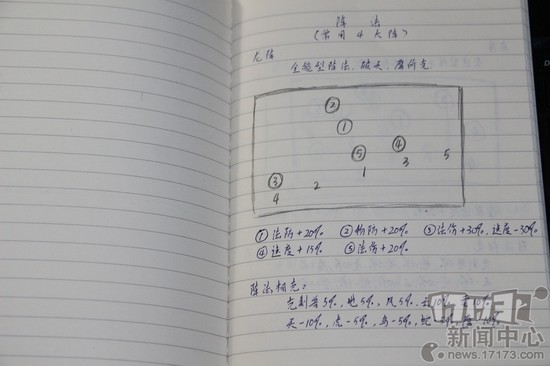 阵法
(常用4大阵)
龙阵
全题型阵法,破天,
②
①
⑤ ④
1 3 5
③ 2
4
①法防+20% ②物防+20% ③法伤+30%,速度-30%
④速度+15% ⑤法伤+20%
阵法相克:
克制普5%,地5%,风5%,云10%,
天-10%,虎-5%,鸟-5%,蛇
17173
新闻中心
news.17173.com